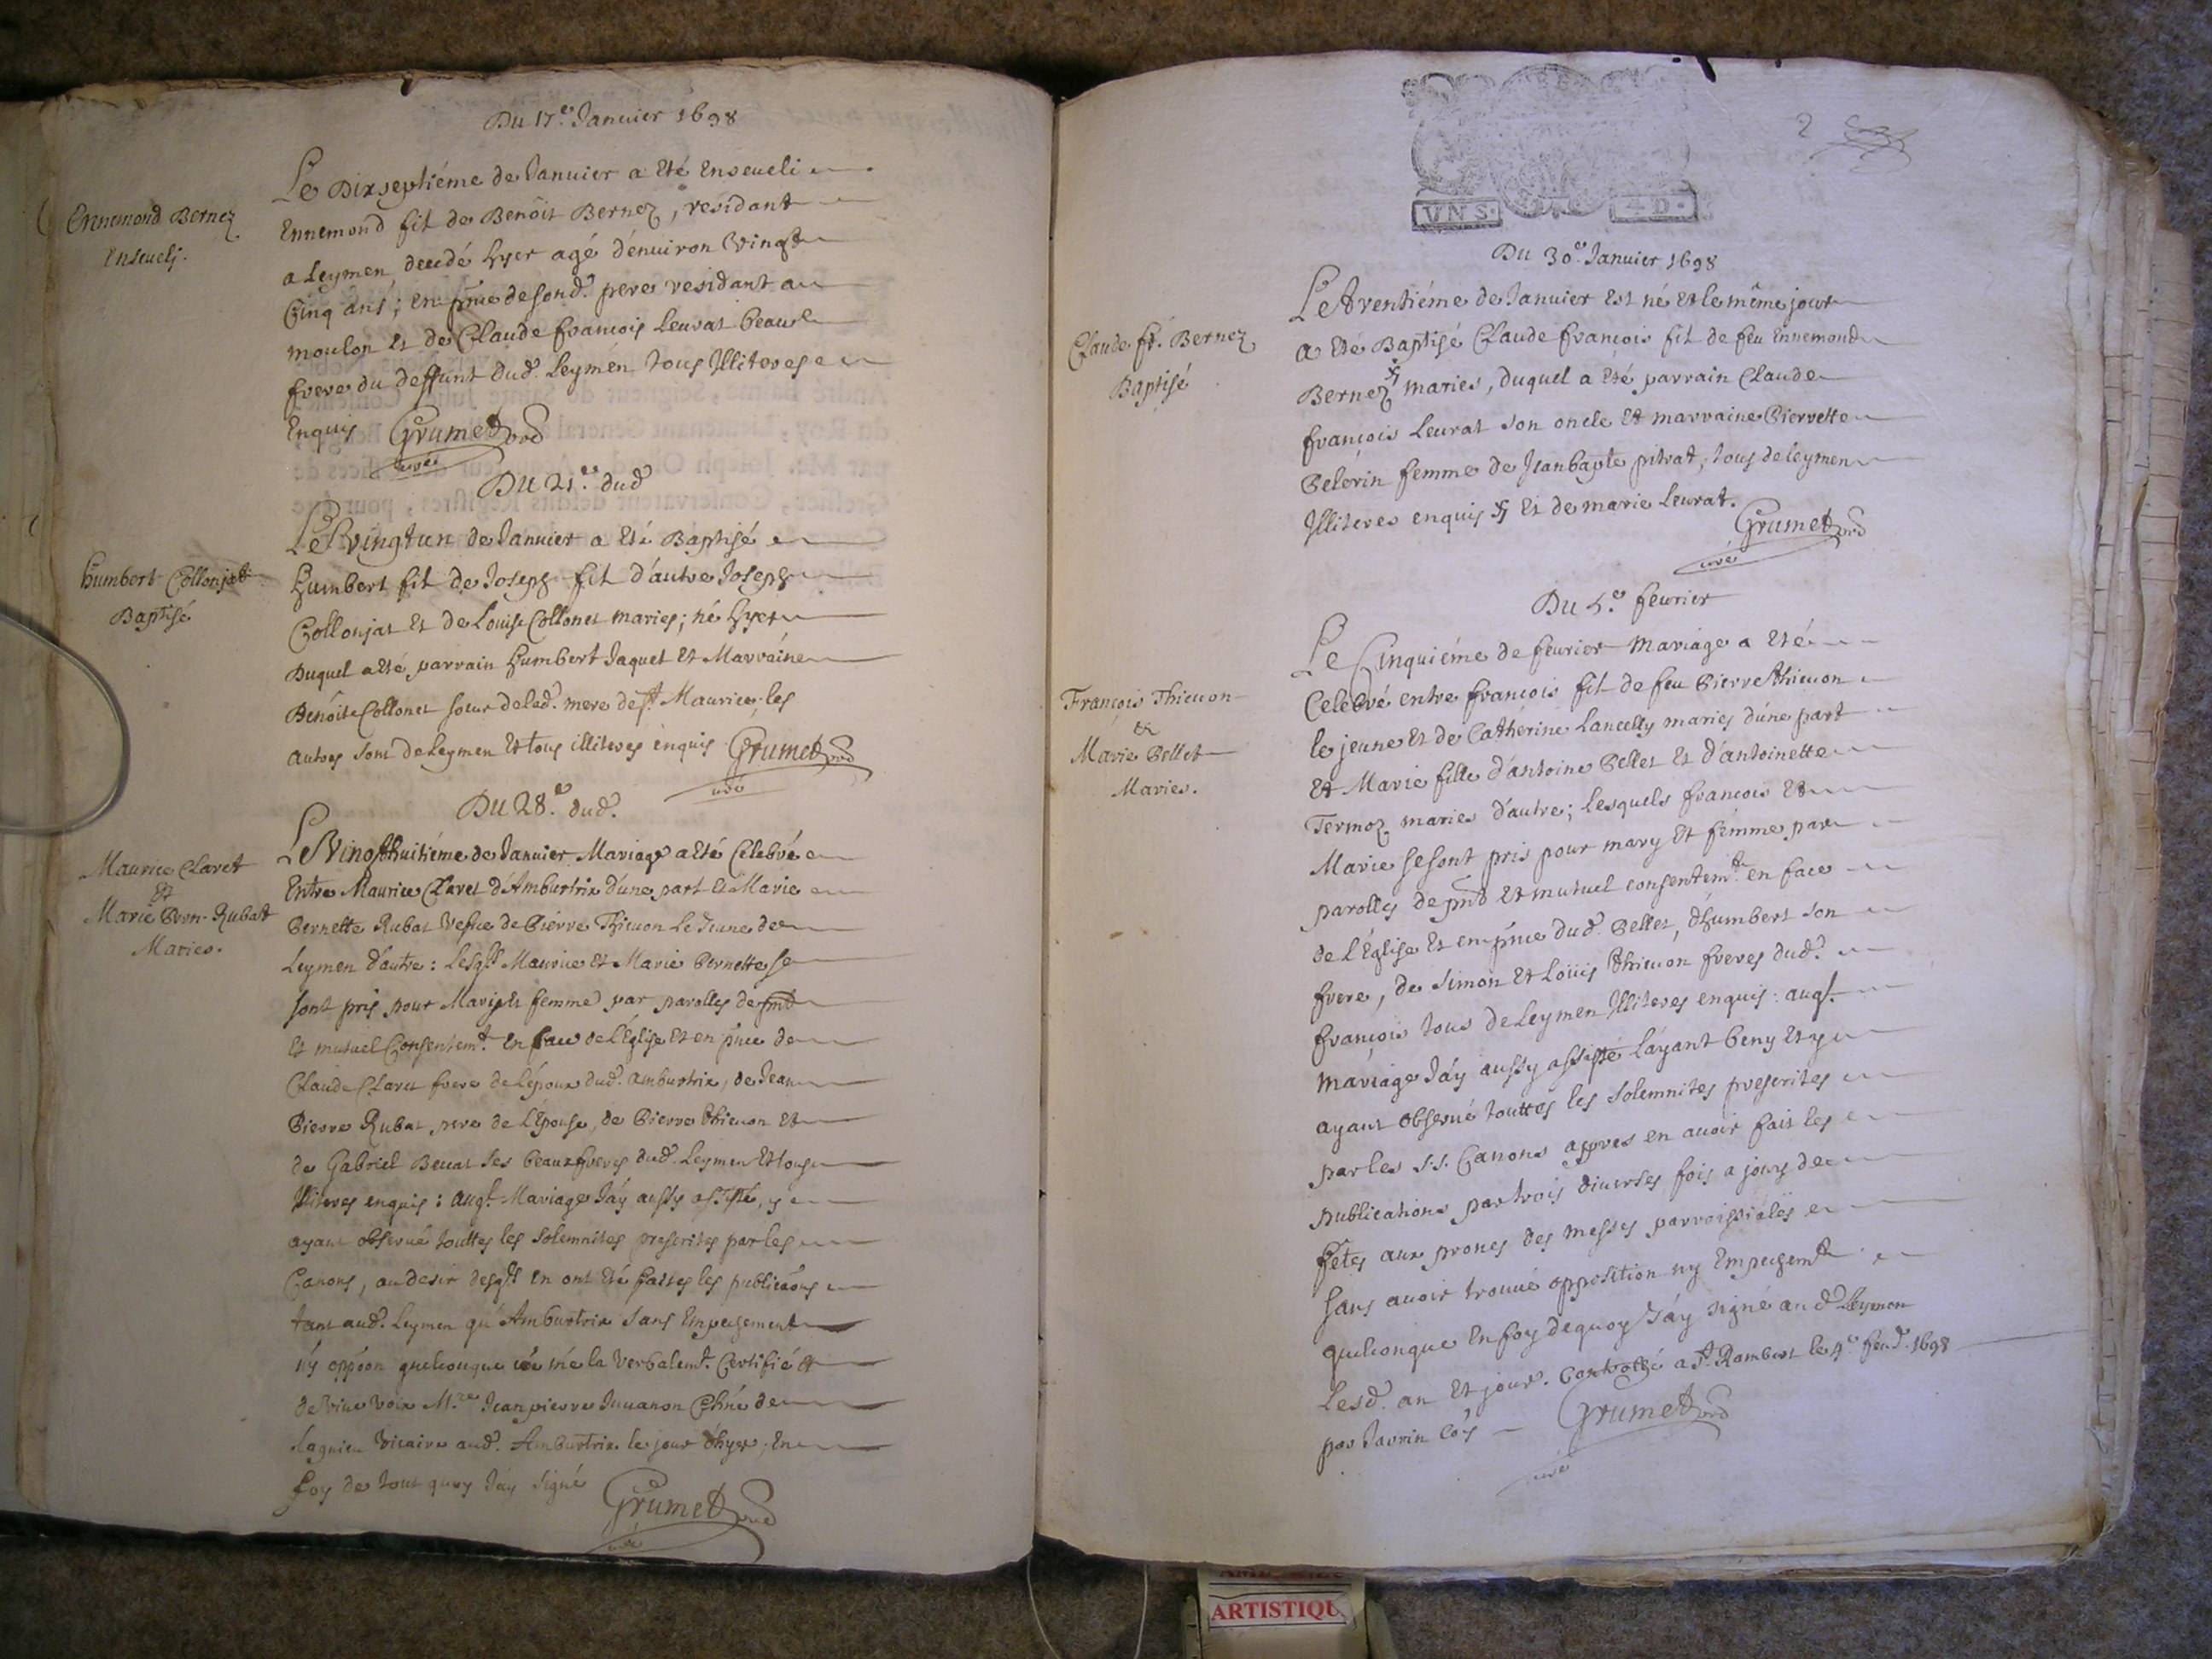 Du 17.e Januier 1698
Le Dixseptiéme de Januier a Eté Enseueli
Ennemond Bernez
Enseuely.
Ennemond fil de Benoit Bernez, residant
a Leymen decedé hyer agé d'enuiron Vingt
Cinq ans; en pnce de sond. pere residant au
moulon et de Claude francois Leurat beau
frere du deffunt dud. Leymen tous Illiteres
Enquis Grumet ord
curé
Du 21.e dud
Le vingt un de Januier a Eté Baptisé
Humbert Collonjat
Baptisé
Humbert fil de Joseph fil d'autre Joseph
Collonjat Et de Louise Collonet maries; né hyer
Duquel a Eté parrain Humbert Jaquet Et Marraine
Benoite Collonet soeur de lad. mere de St Maurice, les
autres sont de Leymen Et tous illiteres enquis Grumet ord
curé
Du 28.e dud.
Le Vingthuitiéme de Januier Mariage a Eté Celebré
Maurice Claret
Et
Marie Pern. Rubat
Maries.
Entre Maurice Claret d'Amburtrix d'une part Et Marie
Pernette Rubat Vesue de Pierre Thieuon Le Jeune de
Leymen d'autre: Lesqls Maurice Et Marie Pernette se
sont pris pour Mary et femme par parolles de pnt
Et mutuel Consentemt. En face de l'Eglise Et en pnce de
Claude Claret frere de l'époux dud. amburtrix, de Jean
Pierre Rubat pere de l'Epouse, de Pierre Thieuon Et
de Gabriel Beuat ses beaux freres dud. Leymen Et tous
Illiteres enquis: auql. Mariage J'ay aussy assisté, y
ayant obserué touttes les solemnites prescrites par les
Canons, au desir desqls en ont Eté faites les publicaons
tant aud. Leymen qu'Amburtrix sans Empechement
ny oppeon quelconque me la Verbalemt. Certifié Et
de Viue Voix M.re Jean pierre Juuanon Chne de
Lagnieu Vicaire aud. Amburtrix le jour d'hyer; En
foy de tout quoy J'ay signé Grumet curé
2
VN S. 4 D.
Du 30.e Januier 1698
Le trentiéme de Januier Est né Et le même jour
Claude fr. Bernez
Baptisé
a Eté Baptisé Claude francois fil de feu Ennemond
Bernez # maries, duquel a Eté parrain Claude
francois Leurat son oncle Et marraine Pierrette
Pelerin femme de Jean bapte pitrat, tous de Leymen
Illiteres enquis # Et de marie Leurat.
Grumet ord
curé
Du 5.e feurier
Le Cinquiéme de feurier Mariage a Eté
Celebré entre francois fil de feu Pierre Thieuon
François Thieuon
Et
Marie Pellet
Maries.
le jeune Et de Catherine Lancelly maries d'une part
Et Marie fille d'antoine Pellet Et d'antoinette
Termoz maries d'autre; lesquels francois Et
Marie se sont pris pour mary Et femme par
parolles de pnt Et mutuel consentemt. en face
de l'Eglise Et en pnce dud. Pellet, d'humbert son
frere, de Simon Et Loüis Thieuon freres dud.
françois tous de Leymen Illiteres enquis: auql.
mariage J'ay aussy assisté l'ayant beny Et y
ayant obserué touttes les solemnites prescrites
par les s.s. Canons apres en auoir fait les
publications par trois diuerses fois a jours de
fétes aux prones des messes parroissiales
sans auoir trouué opposition ny Empechemt
quelconque En foy dequoy J'ay signé aud. Leymen
Lesd. an Et jour. Controllé a St Rambert le 9e feur. 1698
par Jarrin Cos Grumet ord
curé
ARTISTIQU